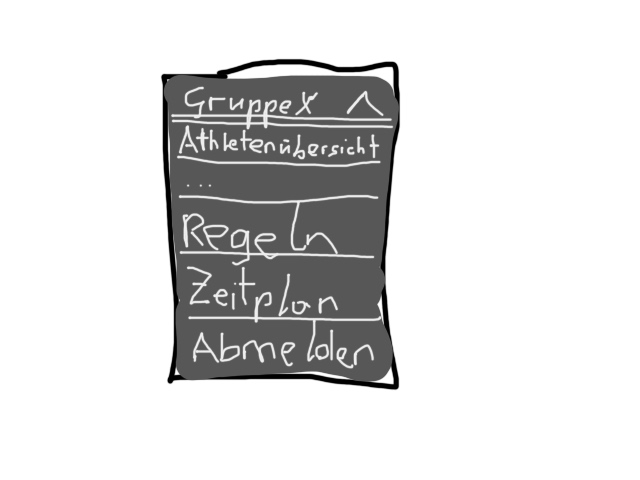 Gruppe X
Athletenübersicht
...
Regeln
Zeitplan
Abmelden